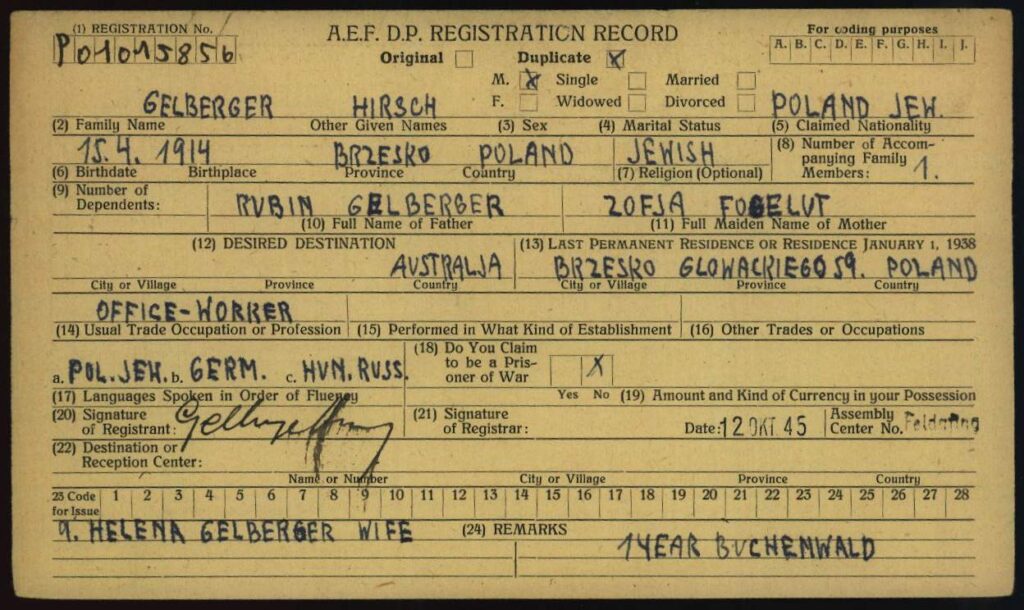 (1) REGISTRATION No. A.E.F. D.P. REGISTRATION RECORD For coding purposes
P01015856 Original Duplicate X A. B. C. D. E. F. G. H. I. J.
M. X Single Married
GELBERGER HIRSCH F. Widowed Divorced POLAND JEW.
(2) Family Name Other Given Names (3) Sex (4) Marital Status (5) Claimed Nationality
15.4. 1914 BRZESKO POLAND JEWISH (8) Number of Accom-
panying Family
Members: 1.
(6) Birthdate Birthplace Province Country (7) Religion (Optional)
(9) Number of
Dependents: RUBIN GELBERGER ZOFJA
(10) Full Name of Father (11) Full Maiden Name of Mother
(12) DESIRED DESTINATION (13) LAST PERMANENT RESIDENCE OR RESIDENCE JANUARY 1, 1938
AUSTRALJA BRZESKO GLOWACKIEGO 59. POLAND
City or Village Province Country City or Village Province Country
OFFICE-WORKER
(14) Usual Trade Occupation or Profession (15) Performed in What Kind of Establishment (16) Other Trades or Occupations
a. POL. JEW. b. GERM. c. HUN. RUSS. (18) Do You Claim
to be a Pris-
oner of War X
(17) Languages Spoken in Order of Fluency Yes No (19) Amount and Kind of Currency in your Possession
(20) Signature
of Registrant: (21) Signature
of Registrar: Date: 12 OKT. 45 Assembly
Center No. Feldafing
(22) Destination or
Reception Center:
Name or Number City or Village Province Country
23 Code
for Issue 1 2 3 4 5 6 7 8 9 10 11 12 13 14 15 16 17 18 19 20 21 22 23 24 25 26 27 28
9. HELENA GELBERGER WIFE (24) REMARKS
1 YEAR BUCHENWALD